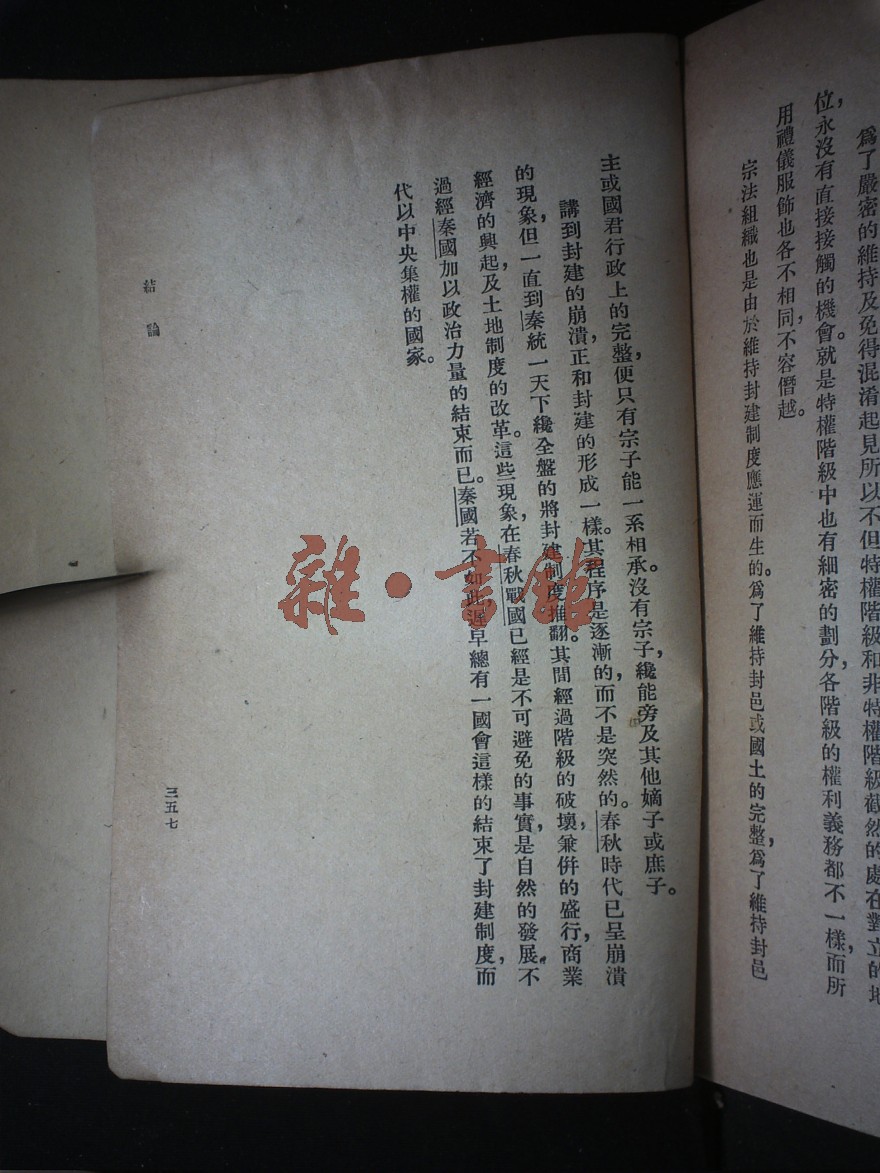 爲了嚴密的維持及免得混淆起見所以不但特權階級和非特權階級截然的處在對立的地
位,永沒有直接接觸的機會。就是特權階級中也有細密的劃分,各階級的權利義務都不一樣,而所
用禮儀服飾也各不相同,不容僭越。
宗法組織也是由於維持封建制度應運而生的。爲了維持封邑或國土的完整,爲了維持封邑
主或國君行政上的完整,便只有宗子能一系相承。沒有宗子,纔能旁及其他嫡子或庶子。
講到封建的崩潰,正和封建的形成一樣。其程序是逐漸的,而不是突然的。春秋時代已呈崩潰
的現象,但一直到秦統一天下纔全盤的將封建制度推翻。其間經過階級的破壞,兼併的盛行,商業
經濟的興起,及土地制度的改革。這些現象,在春秋戰國已經是不可避免的事實,是自然的發展,不
過經秦國加以政治力量的結束而已。秦國若不如此,遲早總有一國會這樣的結束了封建制度,而
代以中央集權的國家。
結論
三五七
雜·書館